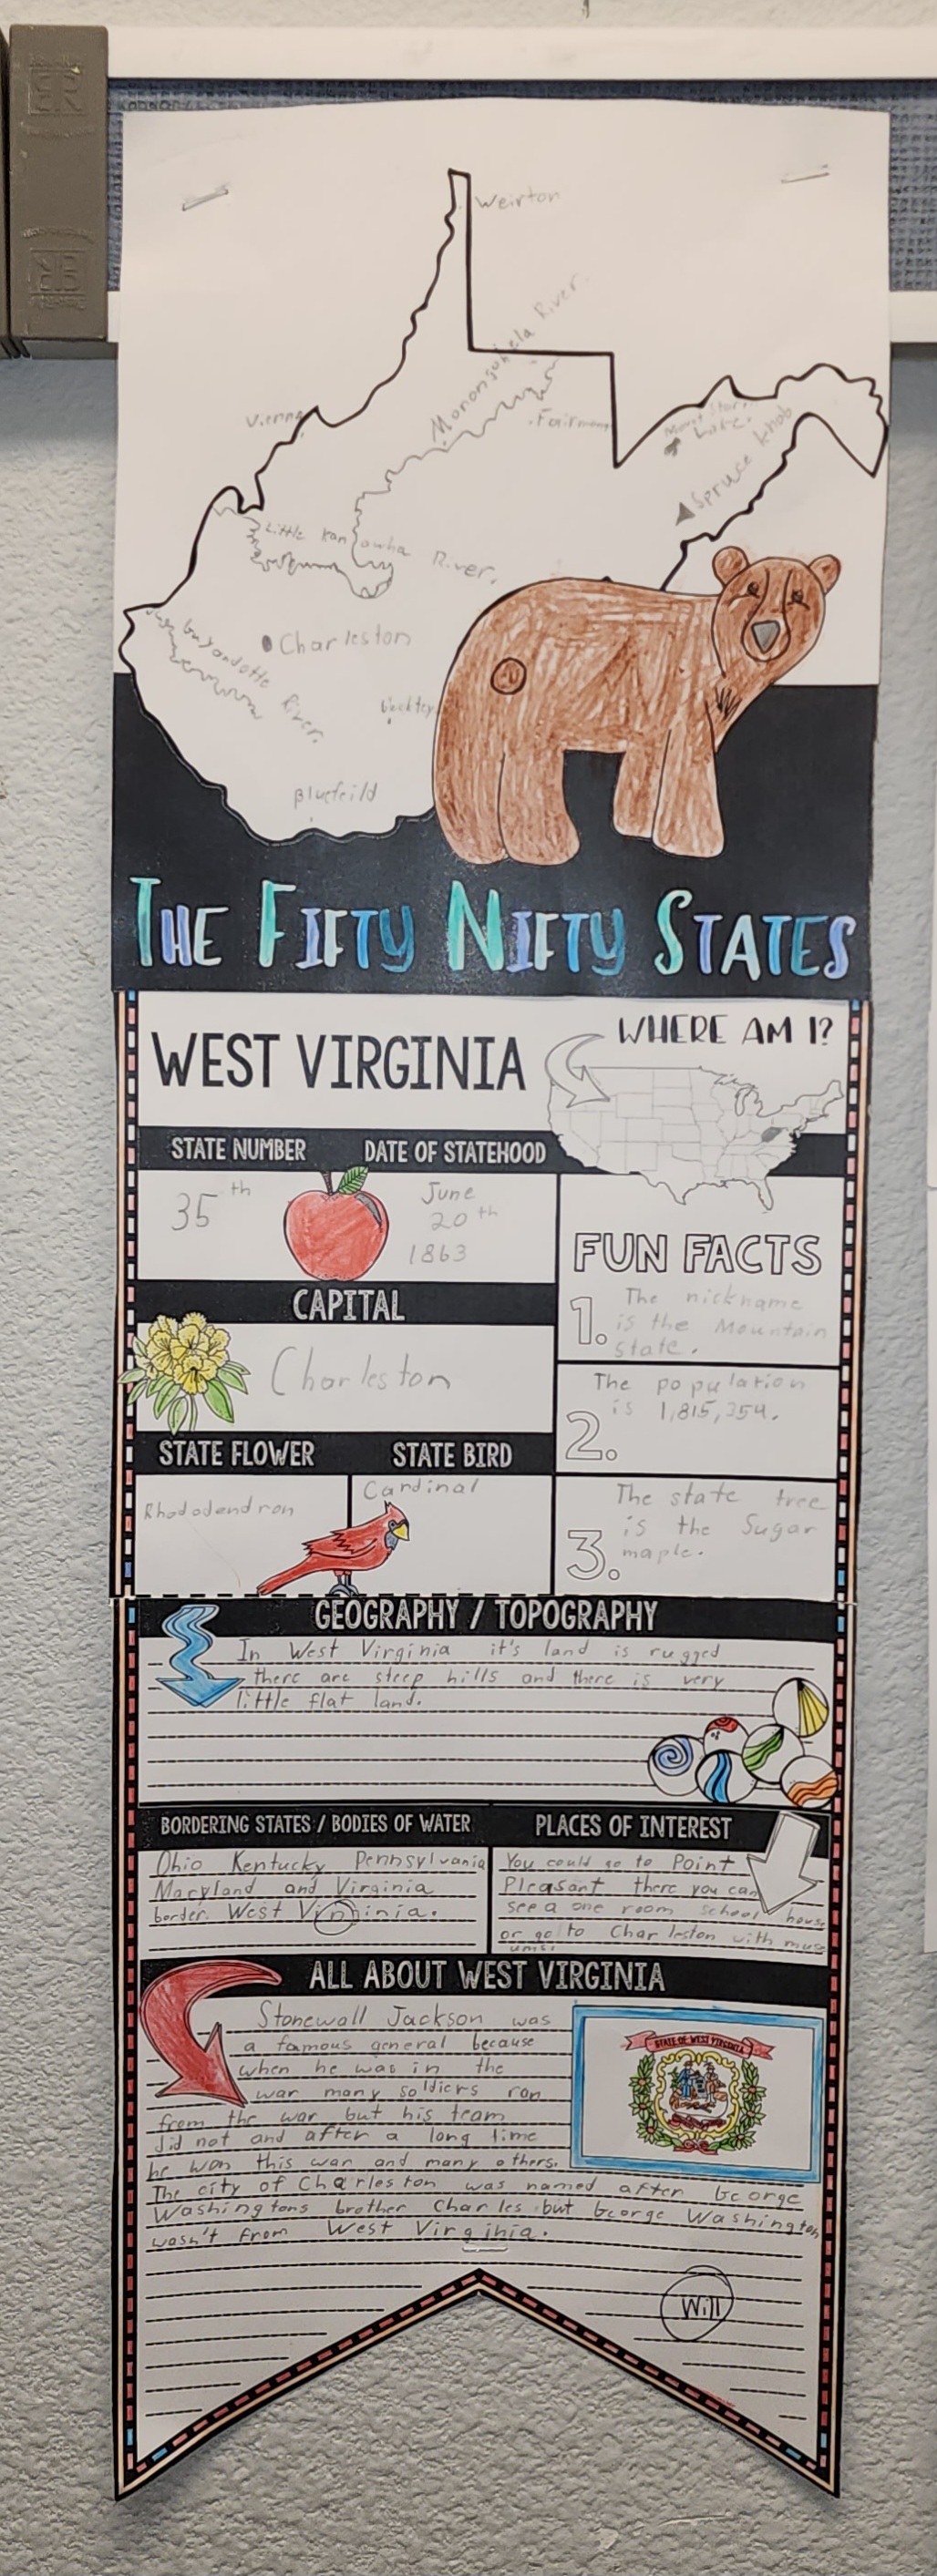 Weirton
Monongahela River.
Vienna
Fairmont
Mount Storm
Lake.
Spruce knob
Little Kanawha River.
Charleston
Guyandotte River.
Beckley
Bluefeild
THE FIFTY NIFTY STATES
WEST VIRGINIA
WHERE AM I?
STATE NUMBER
DATE OF STATEHOOD
35th
June
20th
1863
CAPITAL
Charleston
STATE FLOWER
STATE BIRD
Rhododendron
Cardinal
FUN FACTS
1. The nickname
is the Mountain
state.
2. The population
is 1,815,354.
3. The state tree
is the Sugar
maple.
GEOGRAPHY / TOPOGRAPHY
In West Virginia it's land is rugged
there are steep hills and there is very
little flat land.
BORDERING STATES / BODIES OF WATER
Ohio Kentucky Pennsylvania
Maryland and Virginia
border West Virginia.
PLACES OF INTEREST
You could go to Point
Pleasant there you can
see a one room school house
or go to Charleston with muse
ums.
ALL ABOUT WEST VIRGINIA
Stonewall Jackson was
a famous general because
when he was in the
war many soldiers ran
from the war but his team
did not and after a long time
he won this war and many others.
The city of Charleston was named after George
Washingtons brother Charles but George Washington
wasn't from West Virginia.
STATE OF WEST VIRGINIA
Will